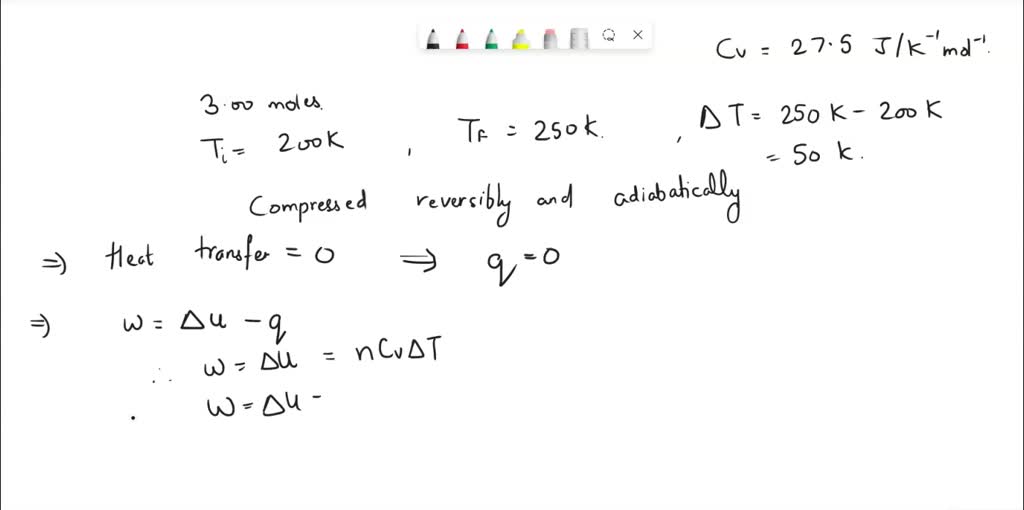 Cv = 27.5 J/K⁻¹mol⁻¹.
3.00 moles.
Ti = 200K , TF = 250K. , ΔT = 250 K - 200 K
= 50 K.
Compressed reversibly and adiabatically
⇒ Heat transfer = 0 ⇒ q = 0
⇒ w = Δu - q
∴ w = Δu = nCvΔT
. w = Δu =